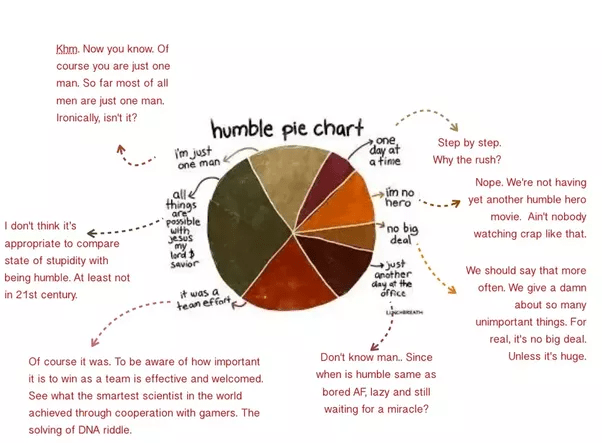 Khm. Now you know. Of
course you are just one
man. So far most of all
men are just one man.
Ironically, isn't it?
humble pie chart
i'm just
one man
one
day at
a time
Step by step.
Why the rush?
all
things
are
possible
with
jesus
my
lord &
savior
i'm no
hero
Nope. We're not having
yet another humble hero
movie. Ain't nobody
watching crap like that.
I don't think it's
appropriate to compare
state of stupidity with
being humble. At least not
in 21st century.
no big
deal
just
another
day at the
office
We should say that more
often. We give a damn
about so many
unimportant things. For
real, it's no big deal.
Unless it's huge.
it was a
team effort
LYNCHBREATH
Of course it was. To be aware of how important
it is to win as a team is effective and welcomed.
See what the smartest scientist in the world
achieved through cooperation with gamers. The
solving of DNA riddle.
Don't know man.. Since
when is humble same as
bored AF, lazy and still
waiting for a miracle?